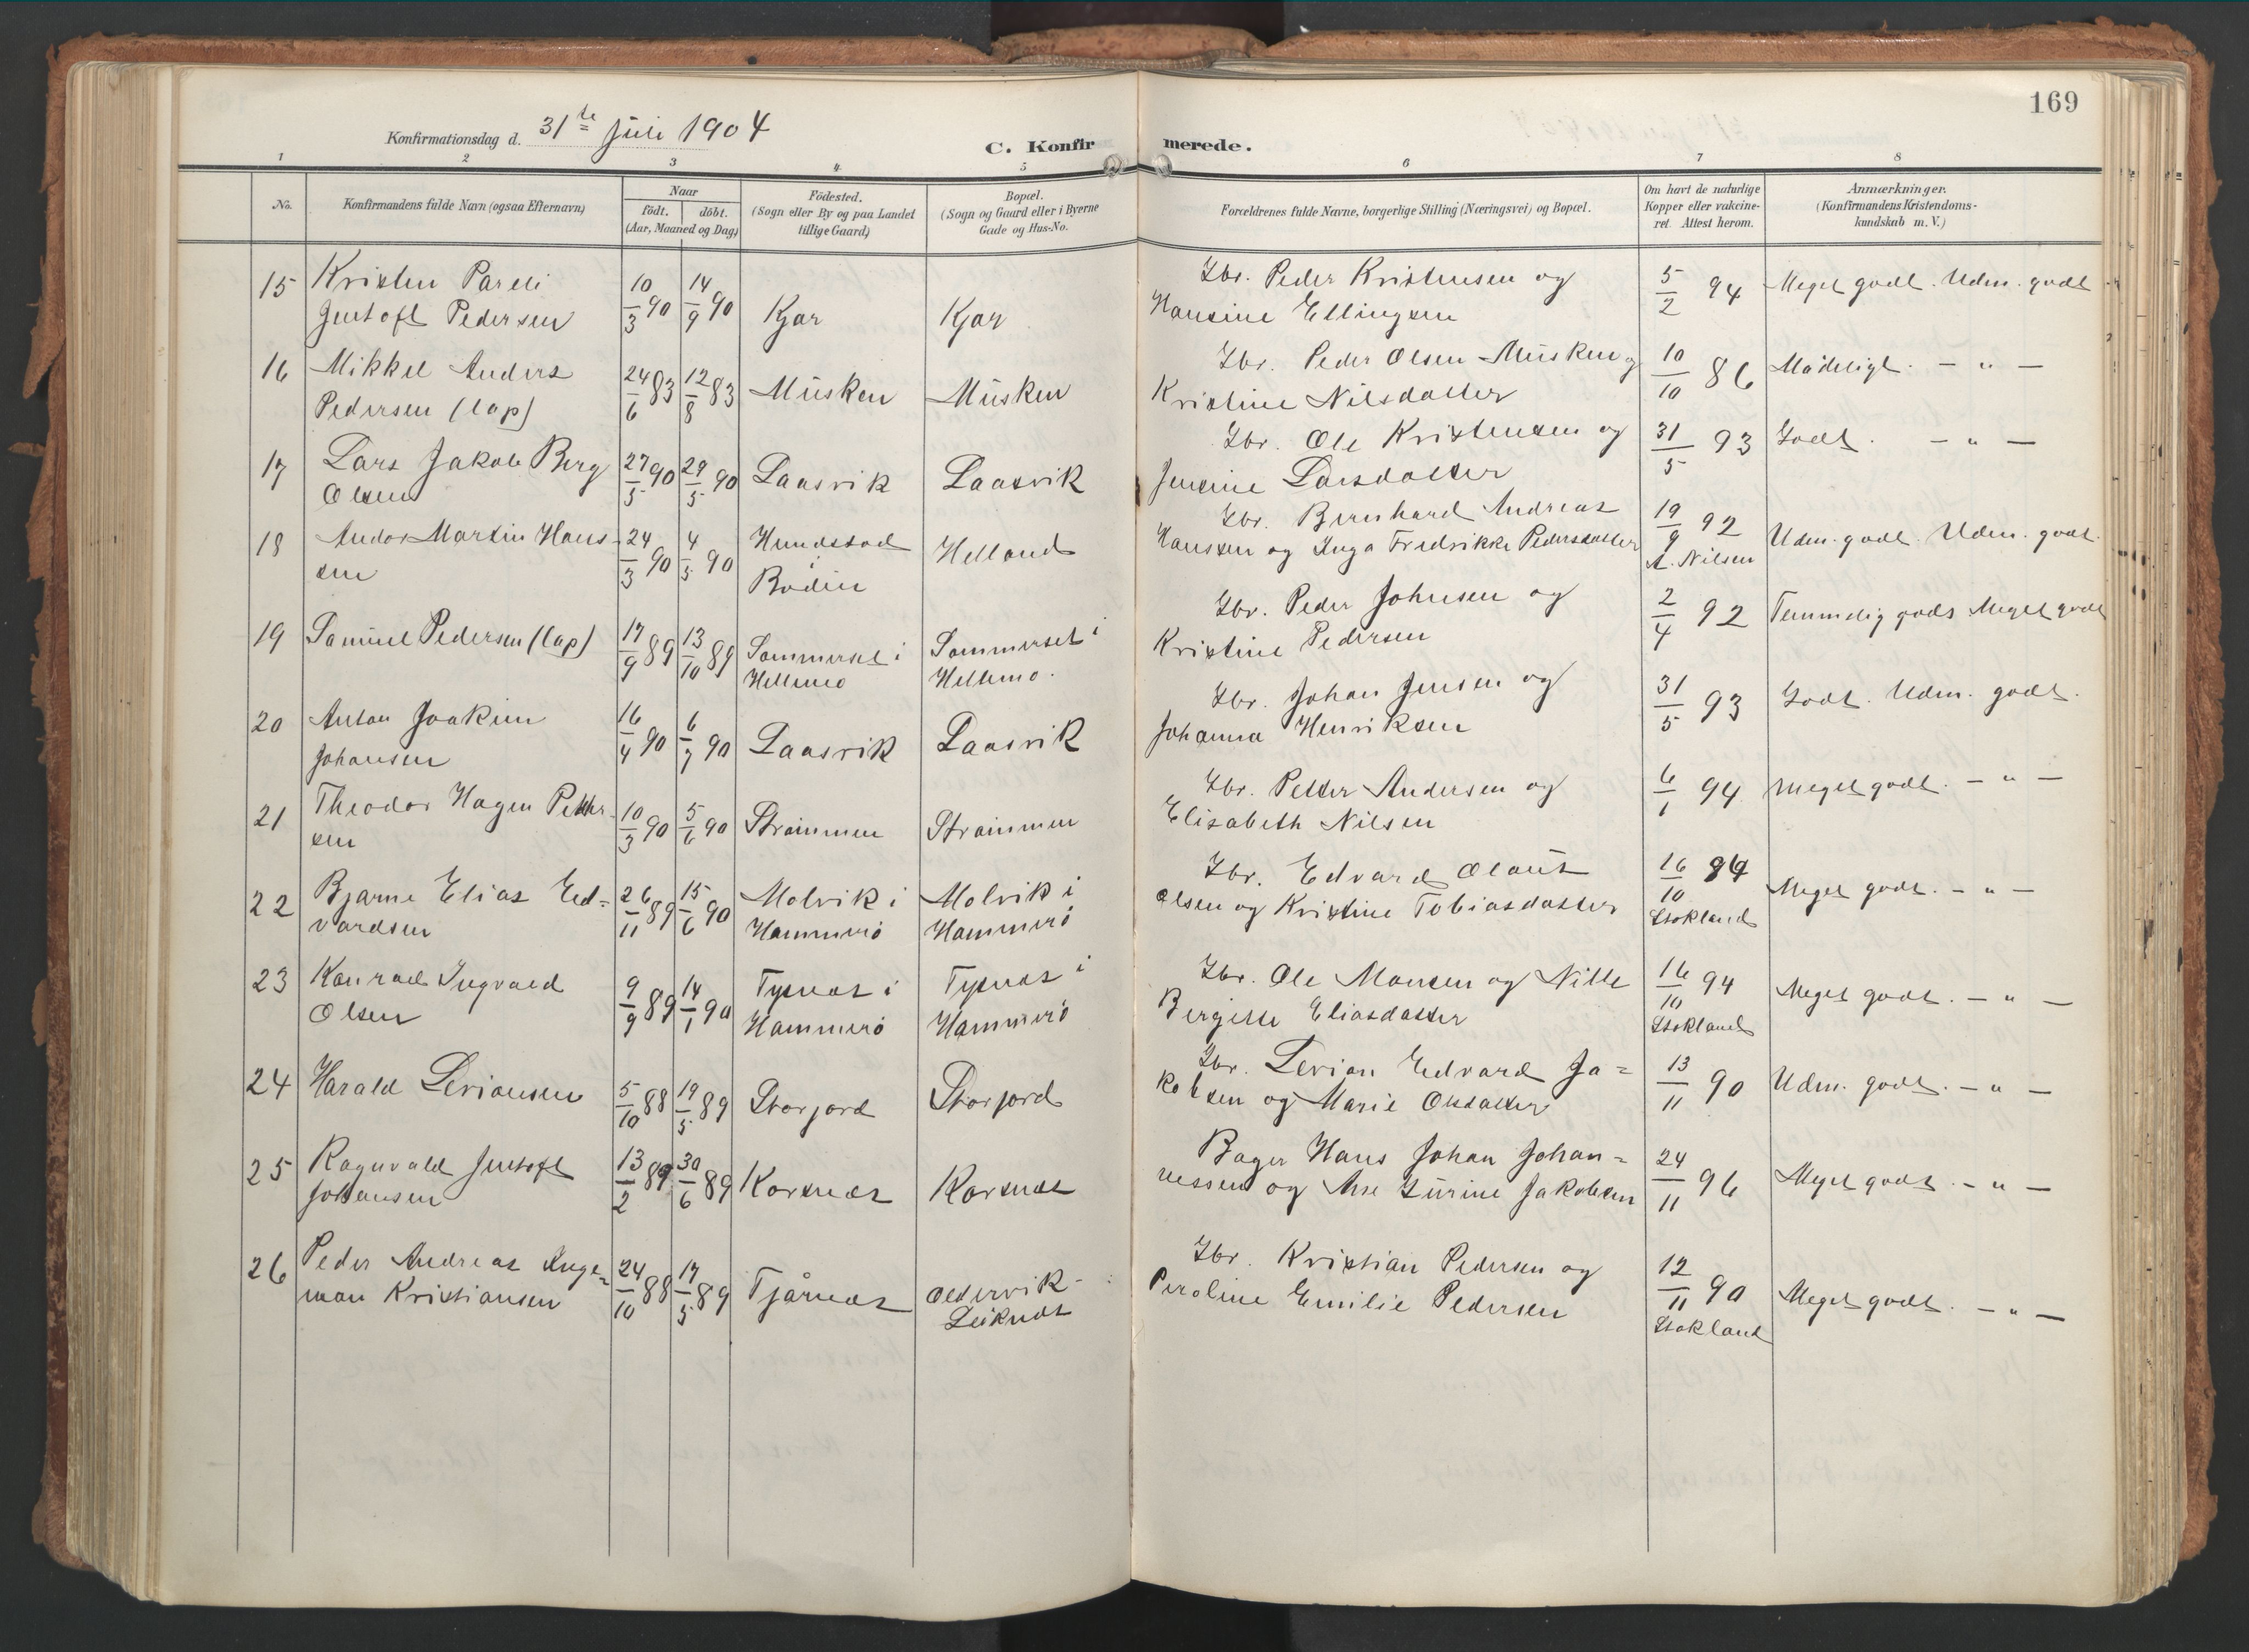 169
Konfirmationsdag d. 31te Juli 1904
C. Konfirmerede.
1 2 3 4 5 6 7 8
No.
Konfirmandens fulde Navn (ogsaa Efternavn)
Naar
födt. döbt.
(Aar, Maaned og Dag)
Födested.
(Sogn eller By og paa Landet
tillige Gaard)
Bopæl.
(Sogn og Gaard eller i Byerne
Gade og Hus-No.
Forældrenes fulde Navne, borgerlige Stilling (Næringsvei) og Bopæl.
Om havt de naturlige
Kopper eller vakcine-
ret. Attest herom.
Anmærkninger.
(Konfirmandens Kristendoms-
kundskab m. V.)
15 Kristen Pareli
Jentoft Pedersen
10/3 90 14/9 90 Kjær Kjær
Gbr. Peder Kristensen og
Hansine Ellingsen
5/2 94 Meget godt. Udm. godt
16 Mikkel Anders
Pedersen (lap)
24/6 83 12/8 83 Musken Musken
Gbr. Peder Olsen Musken og
Kristine Nilsdatter
10/10 86 Mådeligt. — " —
17 Lars Jakob Berg
Olsen
27/5 90 29/5 90 Laasvik Laasvik
Gbr. Ole Kristensen og
Jensine Larsdatter
31/5 93 Godt. — " —
18 Andor Martin Hans-
sen
24/3 90 4/5 90 Hundstad
i
Bodin
Helland
Gbr. Bernhard Andreas
Hanssen og Inga Fredrikke Pedersdatter
19/9 92
A. Nilsen
Udm. godt. Udm. godt.
19 Samuel Pedersen (lap)
17/9 89 13/10 89 Sommerset i
Hellemo
Sommerset i
Hellemo.
Gbr. Peder Johnsen og
Kristine Pedersen
2/4 92 Temmelig godt Meget godt
20 Anton Joakim
Johansen
16/4 90 6/7 90 Laasvik Laasvik
Gbr. Johan Jensen og
Johanna Henriksen
31/5 93 Godt. Udm. godt.
21 Theodor Hagen Petter-
sen
10/3 90 5/6 90 Strømmen Strømmen
Gbr. Petter Andersen og
Elisabeth Nilsen
6/1 94 Meget godt. — " —
22 Bjarne Elias Ed=
vardsen
26/11 89 15/6 90 Molvik i
Hammerö
Molvik i
Hammerö
Gbr. Edvard Olaus
Olsen og Kristine Tobiasdatter
16/10 94
Stokland
Meget godt. — " —
23 Konrad Ingvald
Olsen
9/9 89 14/1 90 Tysnæs i
Hammerö
Tysnæs i
Hammerö
Gbr. Ole Monsen og Nille
Bergitte Eliasdatter
16/10 94
Stokland
Meget godt. — " —
24 Harald Leviansen
5/10 88 19/5 89 Storjord Storjord
Gbr. Levian Edvard Ja=
kobsen og Marie Olsdatter
13/11 90 Udm. godt. — " —
25 Ragnvald Jentoft
Johansen
13/2 89 30/6 89 Korsnæs Korsnæs
Bager Hans Johan Johan=
nessen og Ane Gurine Jakobsen
24/11 96 Meget godt. — " —
26 Peder Andreas Inge=
man Kristiansen
24/10 88 17/5 89 Tjårnæs Oldervik-
Leiknæs
Gbr. Kristian Pedersen og
Peroline Emilie Pedersen
12/11 90
Stokland
Meget godt. — " —